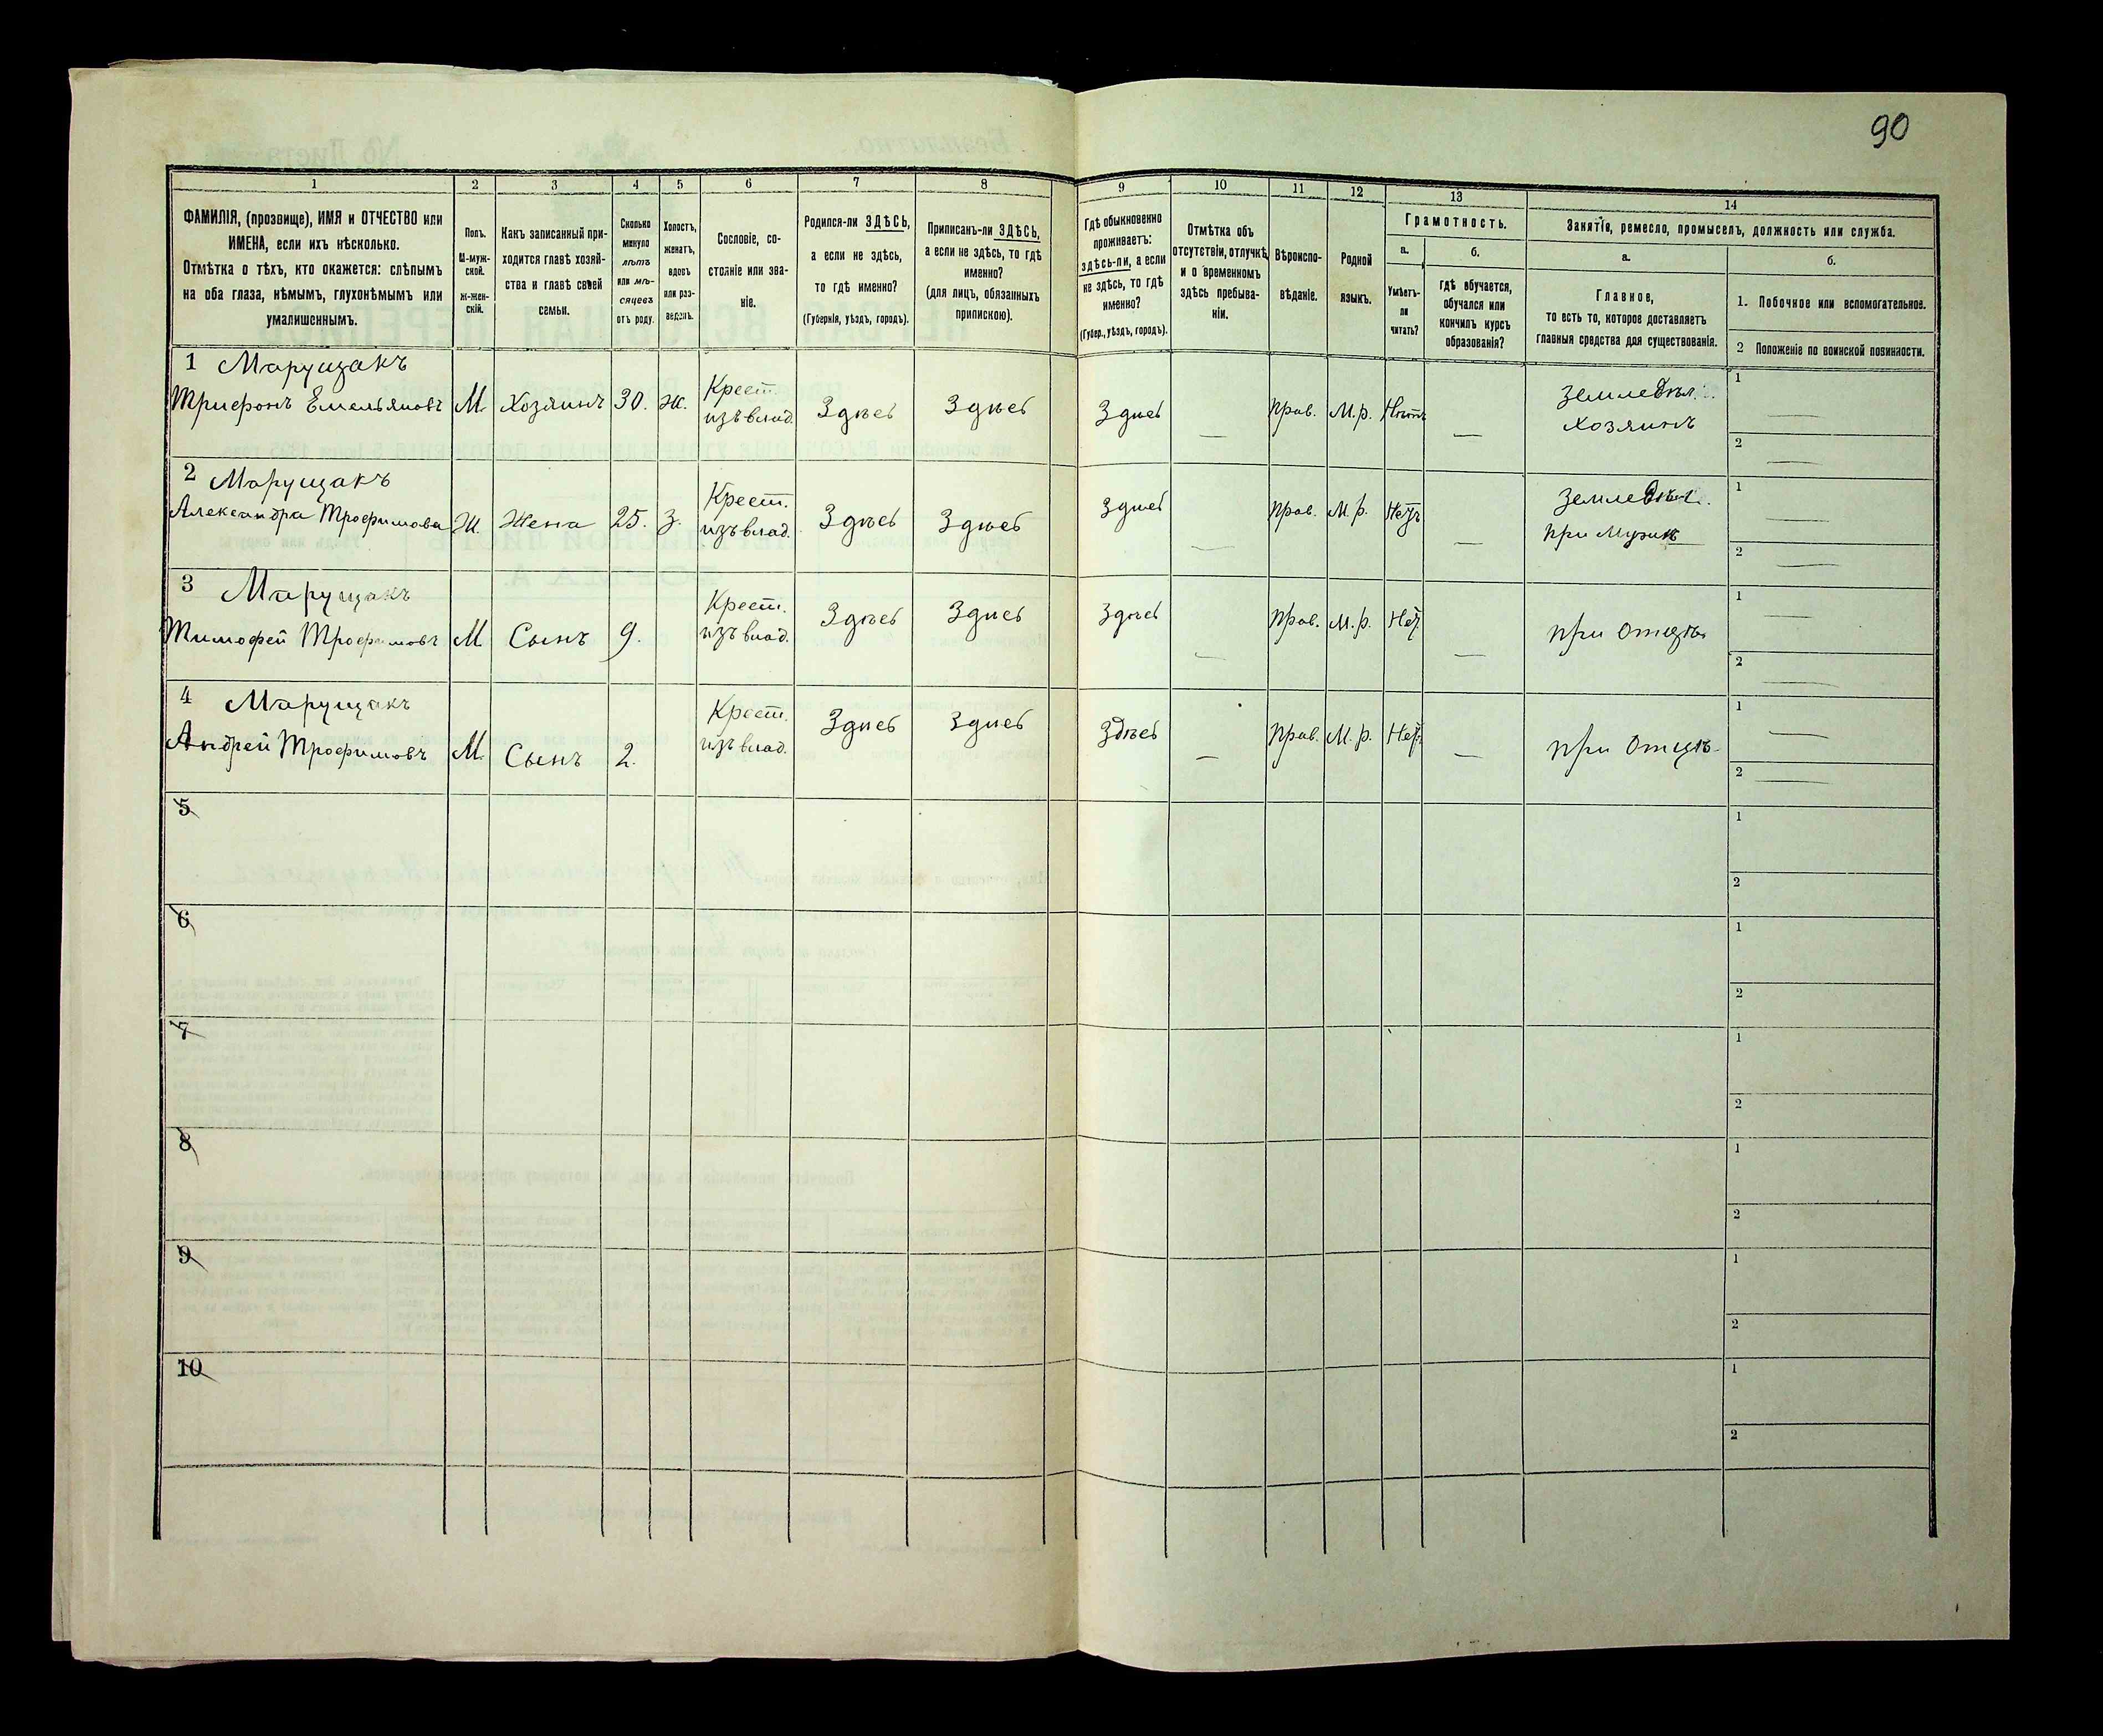 90
1 2 3 4 5 6 7 8 9 10 11 12 13 14
ФАМИЛІЯ, (прозвище), ИМЯ и ОТЧЕСТВО или
ИМЕНА, если ихъ нѣсколько.
Отмѣтка о тѣхъ, кто окажется: слѣпымъ
на оба глаза, нѣмымъ, глухонѣмымъ или
умалишеннымъ.
Полъ.
М-муж-
ской.
Ж-жен-
скій.
Какъ записанный при-
ходится главѣ хозяй-
ства и главѣ своей
семьи.
Сколько
минуло
лѣтъ
или мѣ-
сяцевъ
отъ роду.
Холостъ,
женатъ,
вдовъ
или раз-
веденъ.
Сословіе, со-
стояніе или зва-
ніе.
Родился-ли ЗДѢСЬ,
а если не здѣсь,
то гдѣ именно?
(Губернія, уѣздъ, городъ).
Приписанъ-ли ЗДѢСЬ,
а если не здѣсь, то гдѣ
именно?
(для лицъ, обязанныхъ
припискою).
Гдѣ обыкновенно
проживаетъ:
здѣсь-ли, а если
не здѣсь, то гдѣ
именно?
(Губер., уѣздъ, городъ).
Отмѣтка объ
отсутствіи, отлучкѣ,
и о временномъ
здѣсь пребыва-
ніи.
Вѣроиспо-
вѣданіе.
Родной
языкъ.
Грамотность.
а.
Умѣетъ-
ли
читать?
б.
гдѣ обучается,
обучался или
кончилъ курсъ
образованія?
Занятія, ремесло, промыселъ, должность или служба.
а.
Главное,
то есть то, которое доставляетъ
главныя средства для существованія.
б.
1. Побочное или вспомогательное.
2 Положеніе по воинской повинности.
1 Марущакъ
Трифонъ Емельяновъ М. Хозяинъ 30. Ж. Крест. изъ влад. Здѣсь Здѣсь Здѣсь — Прав. М.р. Нѣтъ — Земледѣл. Хозяинъ 1 — 2 —
2 Марущакъ
Александра Трофимова Ж. Жена 25. З. Крест. изъ влад. Здѣсь Здѣсь Здѣсь — Прав. М.р. Нетъ — Земледѣл. при Мужѣ 1 — 2 —
3 Марущакъ
Тимофей Трофимовъ М Сынъ 9. Крест. изъ влад. Здѣсь Здѣсь Здѣсь — Прав. М.р. Нет. — при Отцѣ 1 — 2 —
4 Марущакъ
Андрей Трофимовъ М. Сынъ 2. Крест. изъ влад. Здѣсь Здѣсь Здѣсь — Прав. М.р. Нет — при Отцѣ 1 — 2 —
5 1 2
6 1 2
7 1 2
8 1 2
9 1 2
10 1 2